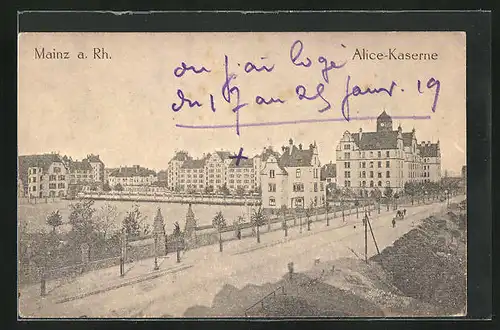 Mainz a. Rh.
Alice-Kaserne
ou j'ai logé
du 17 au 25 janv. 19
+
+